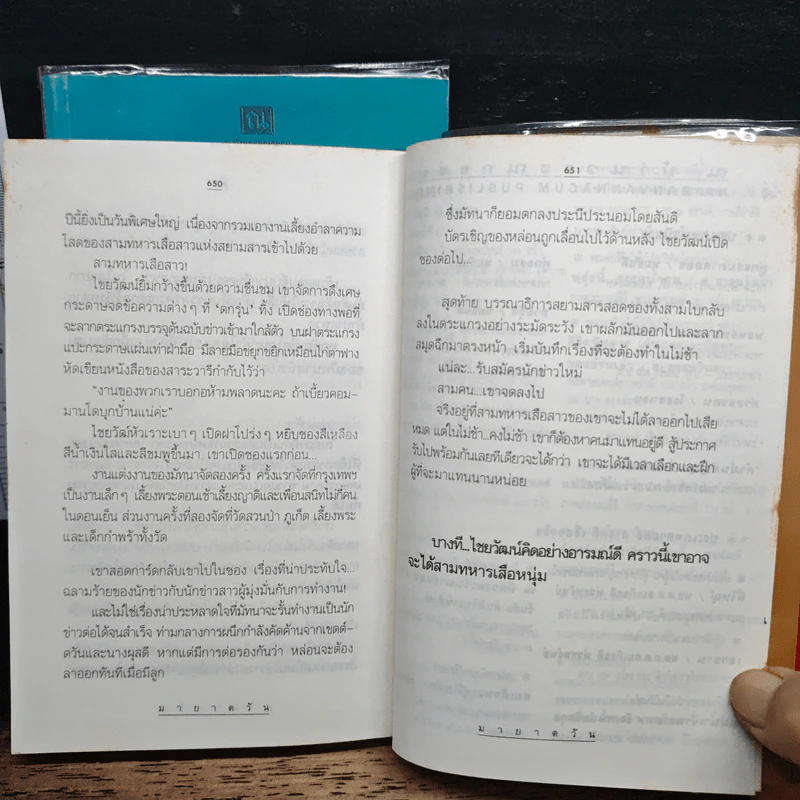 ณ
650
ปีนี้ยิ่งเป็นวันพิเศษใหญ่ เนื่องจากรวมเอางานเลี้ยงอำลาความ
โสดของสามทหารเสือสาวแห่งสยามสารเข้าไปด้วย
สามทหารเสือสาว!
ไชยวัฒน์ยิ้มกว้างขึ้นด้วยความชื่นชม เขาจัดการดึงเศษ
กระดาษจดข้อความต่างๆ ที่ 'ตกรุ่น' ทิ้ง เปิดช่องทางพอที่
จะลากตระแกรงบรรจุต้นฉบับข่าวเข้ามาใกล้ตัว บนฝาตระแกรง
แปะกระดาษแผ่นเท่าฝ่ามือ มีลายมือขยุกขยิกเหมือนไก่ตาฟาง
หัดเขียนหนังสือของสาระวารีกำกับไว้ว่า
“งานของพวกเราบอกอห้ามพลาดนะคะ ถ้าเบี้ยวคอม–
มานโดบุกบ้านแน่ค่ะ”
ไชยวัฒ์หัวเราะเบาๆ เปิดฝาโปร่งๆ หยิบซองสีเหลือง
สีน้ำเงินใสและสีชมพูขึ้นมา เขาเปิดซองแรกก่อน...
งานแต่งงานของมัทนาจัดสองครั้ง ครั้งแรกจัดที่กรุงเทพฯ
เป็นงานเล็กๆ เลี้ยงพระตอนเช้าเลี้ยงญาติและเพื่อนสนิทไม่กี่คน
ในตอนเย็น ส่วนงานครั้งที่สองจัดที่วัดสวนป่า ภูเก็ต เลี้ยงพระ
และเด็กกำพร้าทั้งวัด
เขาสอดการ์ดกลับเข้าไปในซอง เรื่องที่น่าประทับใจ...
ฉลามร้ายของนักข่าวกับนักข่าวสาวผู้มุ่งมั่นกับการทำงาน!
และไม่ใช่เรื่องน่าประหลาดใจที่มัทนาจะรั้นทำงานเป็นนัก
ข่าวต่อได้จนสำเร็จ ท่ามกลางการผนึกกำลังคัดค้านจากเขตต์–
ตวันและนางผุสดี หากแต่มีการต่อรองกันว่า หล่อนจะต้อง
ลาออกทันทีเมื่อมีลูก
มายาตวัน
651
ซึ่งมัทนาก็ยอมตกลงประนีประนอมโดยสันติ
บัตรเชิญของหล่อนถูกเลื่อนไปไว้ด้านหลัง ไชยวัฒน์เปิด
ซองต่อไป...
สุดท้าย บรรณาธิการสยามสารสอดซองทั้งสามใบกลับ
ลงในตระแกรงอย่างระมัดระวัง เขาผลักมันออกไปและลาก
สมุดฉีกมาตรงหน้า เริ่มบันทึกเรื่องที่จะต้องทำในไม่ช้า
แน่ละ...รับสมัครนักข่าวใหม่
สามคน...เขาจดลงไป
จริงอยู่ที่สามทหารเสือสาวของเขาจะไม่ได้ลาออกไปเสีย
หมด แต่ในไม่ช้า...คงไม่ช้า เขาก็ต้องหาคนมาแทนอยู่ดี สู้ประกาศ
รับไปพร้อมกันเลยทีเดียวจะได้กว่า เขาจะได้มีเวลาเลือกและฝึก
ผู้ที่จะมาแทนนานหน่อย
บางที...ไชยวัฒน์คิดอย่างอารมณ์ดี คราวนี้เขาอาจ
จะได้สามทหารเสือหนุ่ม
มายาตวัน